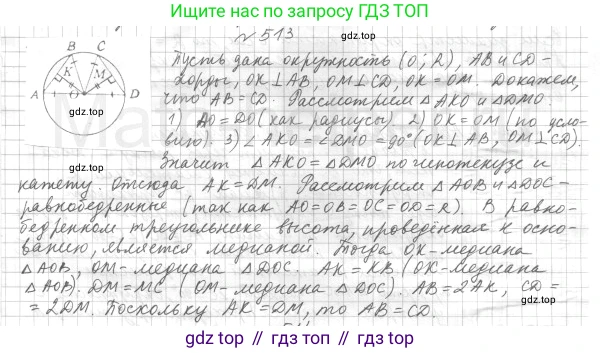 Ищите нас по запросу ГДЗ ТОП
№ 513
B C
K M
A O D
gdz.top
Пусть дана окружность (O; R), AB и CD -
хорды, OK⊥AB, OM⊥CD, OK = OM. Докажем,
что AB = CD. Рассмотрим △AKO и △DMO.
1) AO = DO (как радиусы) 2) OK = OM (по усло-
вию). 3) ∠AKO = ∠DMO = 90° (OK⊥AB, OM⊥CD).
Значит △AKO = △DMO по гипотенузе и
катету. Отсюда AK = DM. Рассмотрим △AOB и △DOC -
равнобедренные (так как AO = OB = OC = OD = R). В равно-
бедренном треугольнике высота, проведённая к осно-
ванию, является медианой. Тогда OK - медиана
△AOB, OM - медиана △DOC. AK = KB (OK - медиана
△AOB). DM = MC (OM - медиана △DOC). AB = 2AK, CD =
= 2DM. Поскольку AK = DM, то AB = CD.
gdz.top
gdz.top
gdz.top
gdz.top
gdz.top
gdz.top // gdz.top // gdz.top // gdz.top